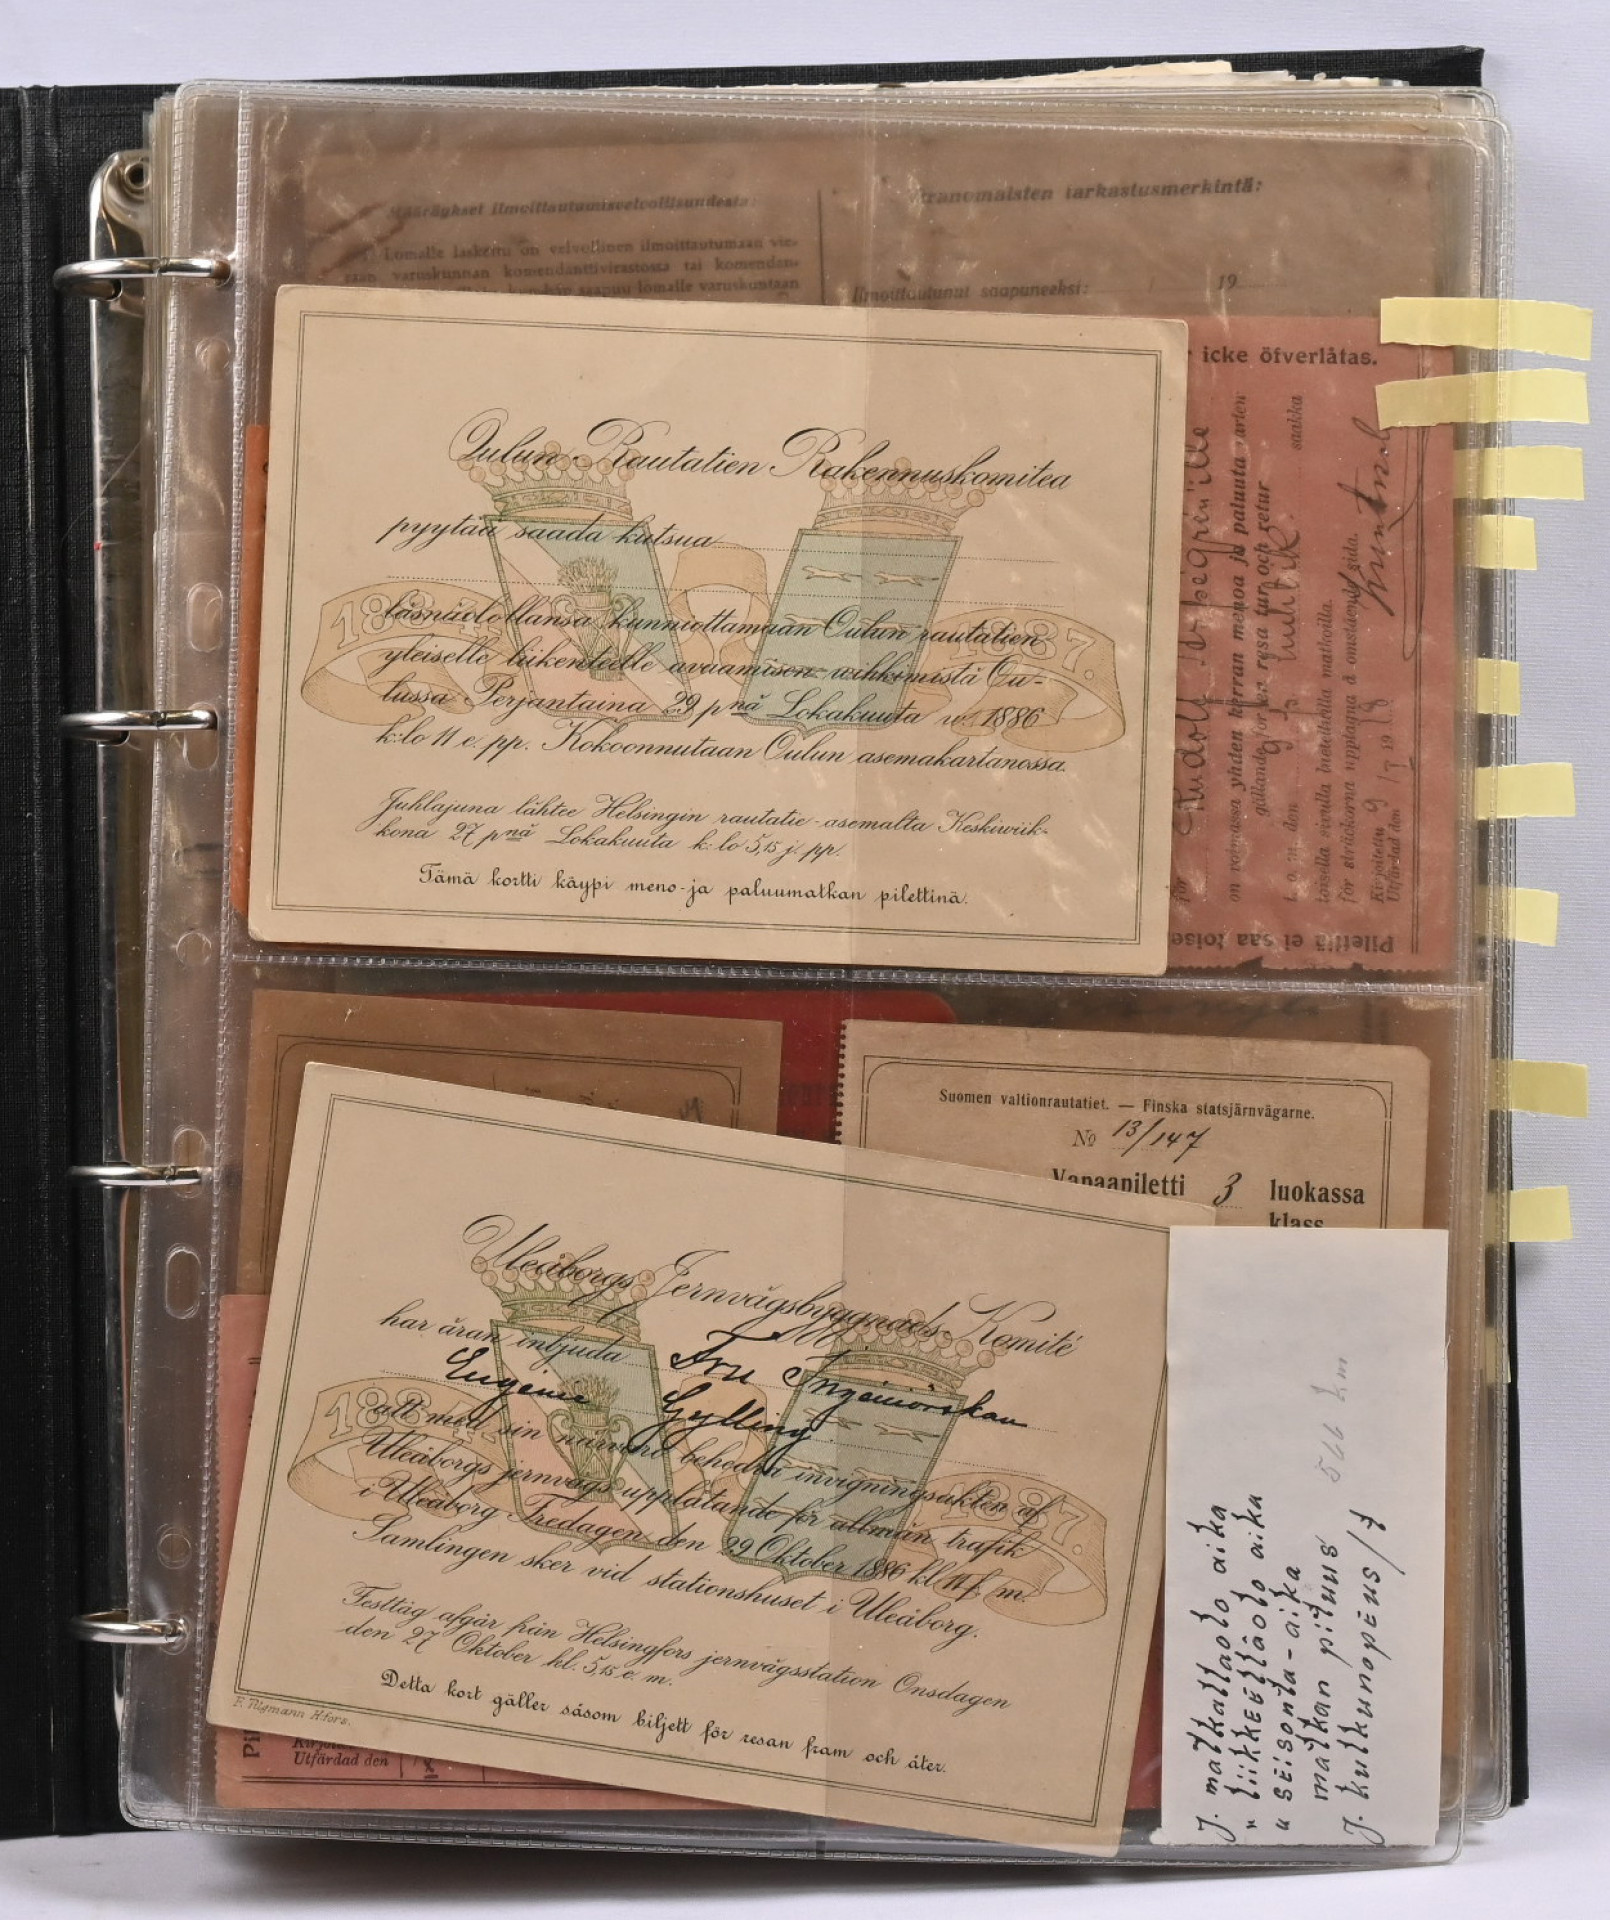 Määräykset ilmoittautumisvelvollisuudesta:
Lomalle laskettu on velvollinen ilmoittautumaan vie-
raan varuskunnan komendanttivirastossa tai komendan-
saapuu lomalle varuskuntaan
tarkastusmerkintä:
Ilmoittautunut saapuneeksi: 19
icke öfverlåtas.
Oulun Rautatien Rakennuskomitea
pyytää saada kutsua
1884
1887.
läsnäolollansa kunnioittamaan Oulun rautatien
yleiselle liikenteelle avaamisen vihkimistä Ou-
lussa Perjantaina 29 pnä Lokakuuta v. 1886
k:lo 11 e. pp. Kokoonnutaan Oulun asemakartanossa.
Juhlajuna lähtee Helsingin rautatie-asemalta Keskiwiik-
kona 27 pnä Lokakuuta k:lo 5,15 j. pp.
Tämä kortti käypi meno- ja paluumatkan pilettinä.
för Rudolf
on voimassa yhden kerran menoa ja paluuta varten
gällande för en resa tur och retur
t. o. m. den saakka
toisella sivulla luetelluilla matkoilla.
för sträckorna upptagna å omstående sida.
Kirjoitettu 9
Utfärdad den / 7 1918
Pilettiä ei saa toise
Suomen valtionrautatiet. — Finska statsjärnvägarne.
No 13/147
Vapaapiletti 3 luokassa
klass
Uleåborgs Jernvägsbyggnads-Komité
har äran inbjuda Fru Ingeniörskan
Eugenie Gylling
1884
1887.
att med sin närvaro behedra invigningsakten af
Uleåborgs jernvägs upplåtande för allmän trafik
i Uleåborg Fredagen den 29 Oktober 1886 kl. 11 f. m.
Samlingen sker vid stationshuset i Uleåborg.
Festtåg afgår från Helsingfors jernvägsstation Onsdagen
den 27 Oktober kl. 5,15 e. m.
Detta kort gäller såsom biljett för resan fram och åter.
F. Tilgmann H:fors.
Utfärdad den
J. matkallaolo aika
" liikkeelläolo aika
" seisonta-aika
matkan pituus 566 km
J. kulkunopeus/t